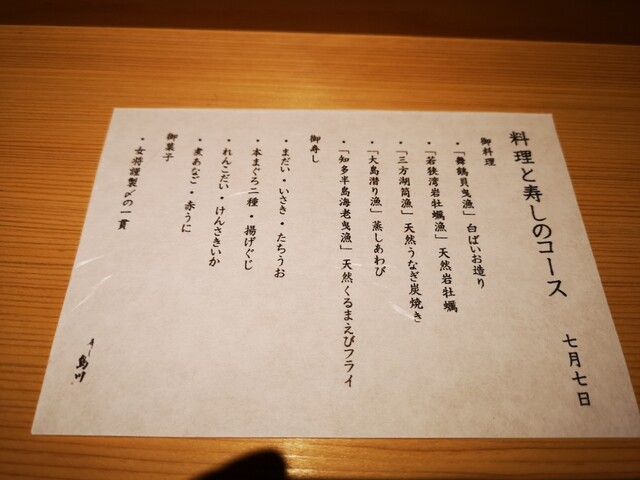 料理と寿しのコース
七月七日
御料理
・「舞鶴貝曳漁」白ばいお造り
・「若狭湾岩牡蠣漁」天然岩牡蠣
・「三方湖筒漁」天然うなぎ炭焼き
・「大島潜り漁」蒸しあわび
・「知多半島海老曳漁」天然くるまえびフライ
御寿し
・まだい・いさき・たちうお
・本まぐろ二種・揚げぐじ
・れんこだい・けんさきいか
・煮あなご・赤うに
御菓子
・女将謹製〆の一貫